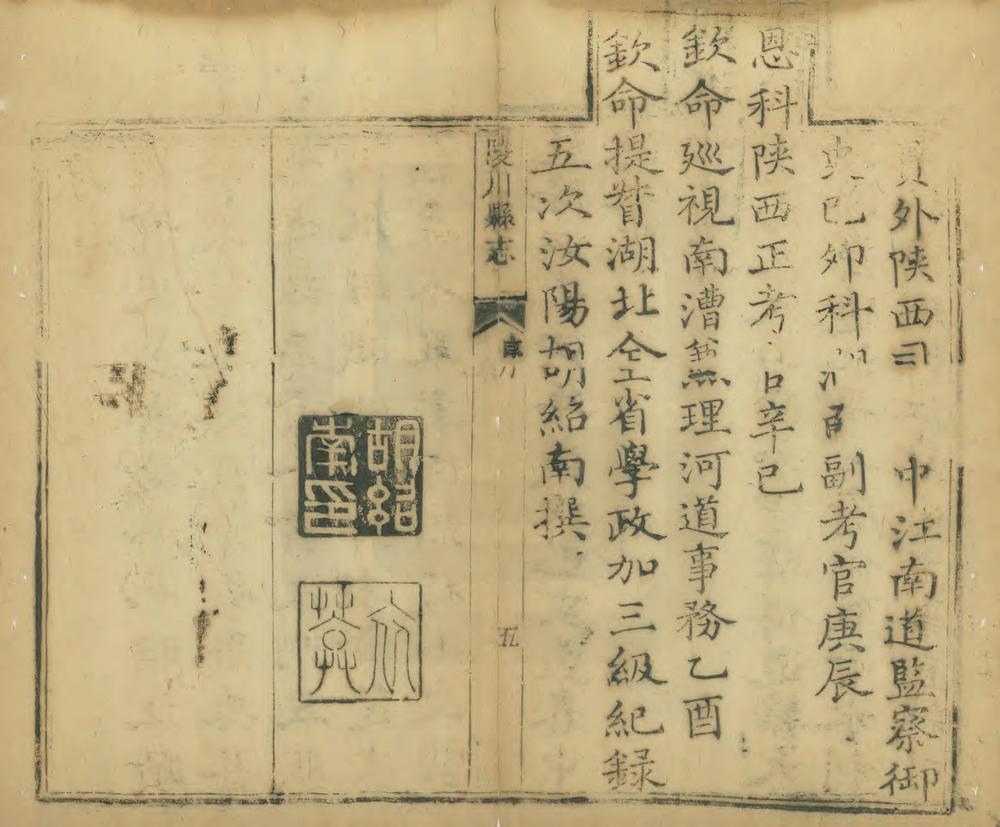 員外陝西司 中江南道監察御
史己卯科湖 副考官庚辰
恩科陝西正考 辛巳
欽命廵視南漕兼理河道事務乙酉
欽命提督湖北全省學政加三級紀録
五次汝陽胡紹南撰
陵川縣志
序
五
胡紹南印